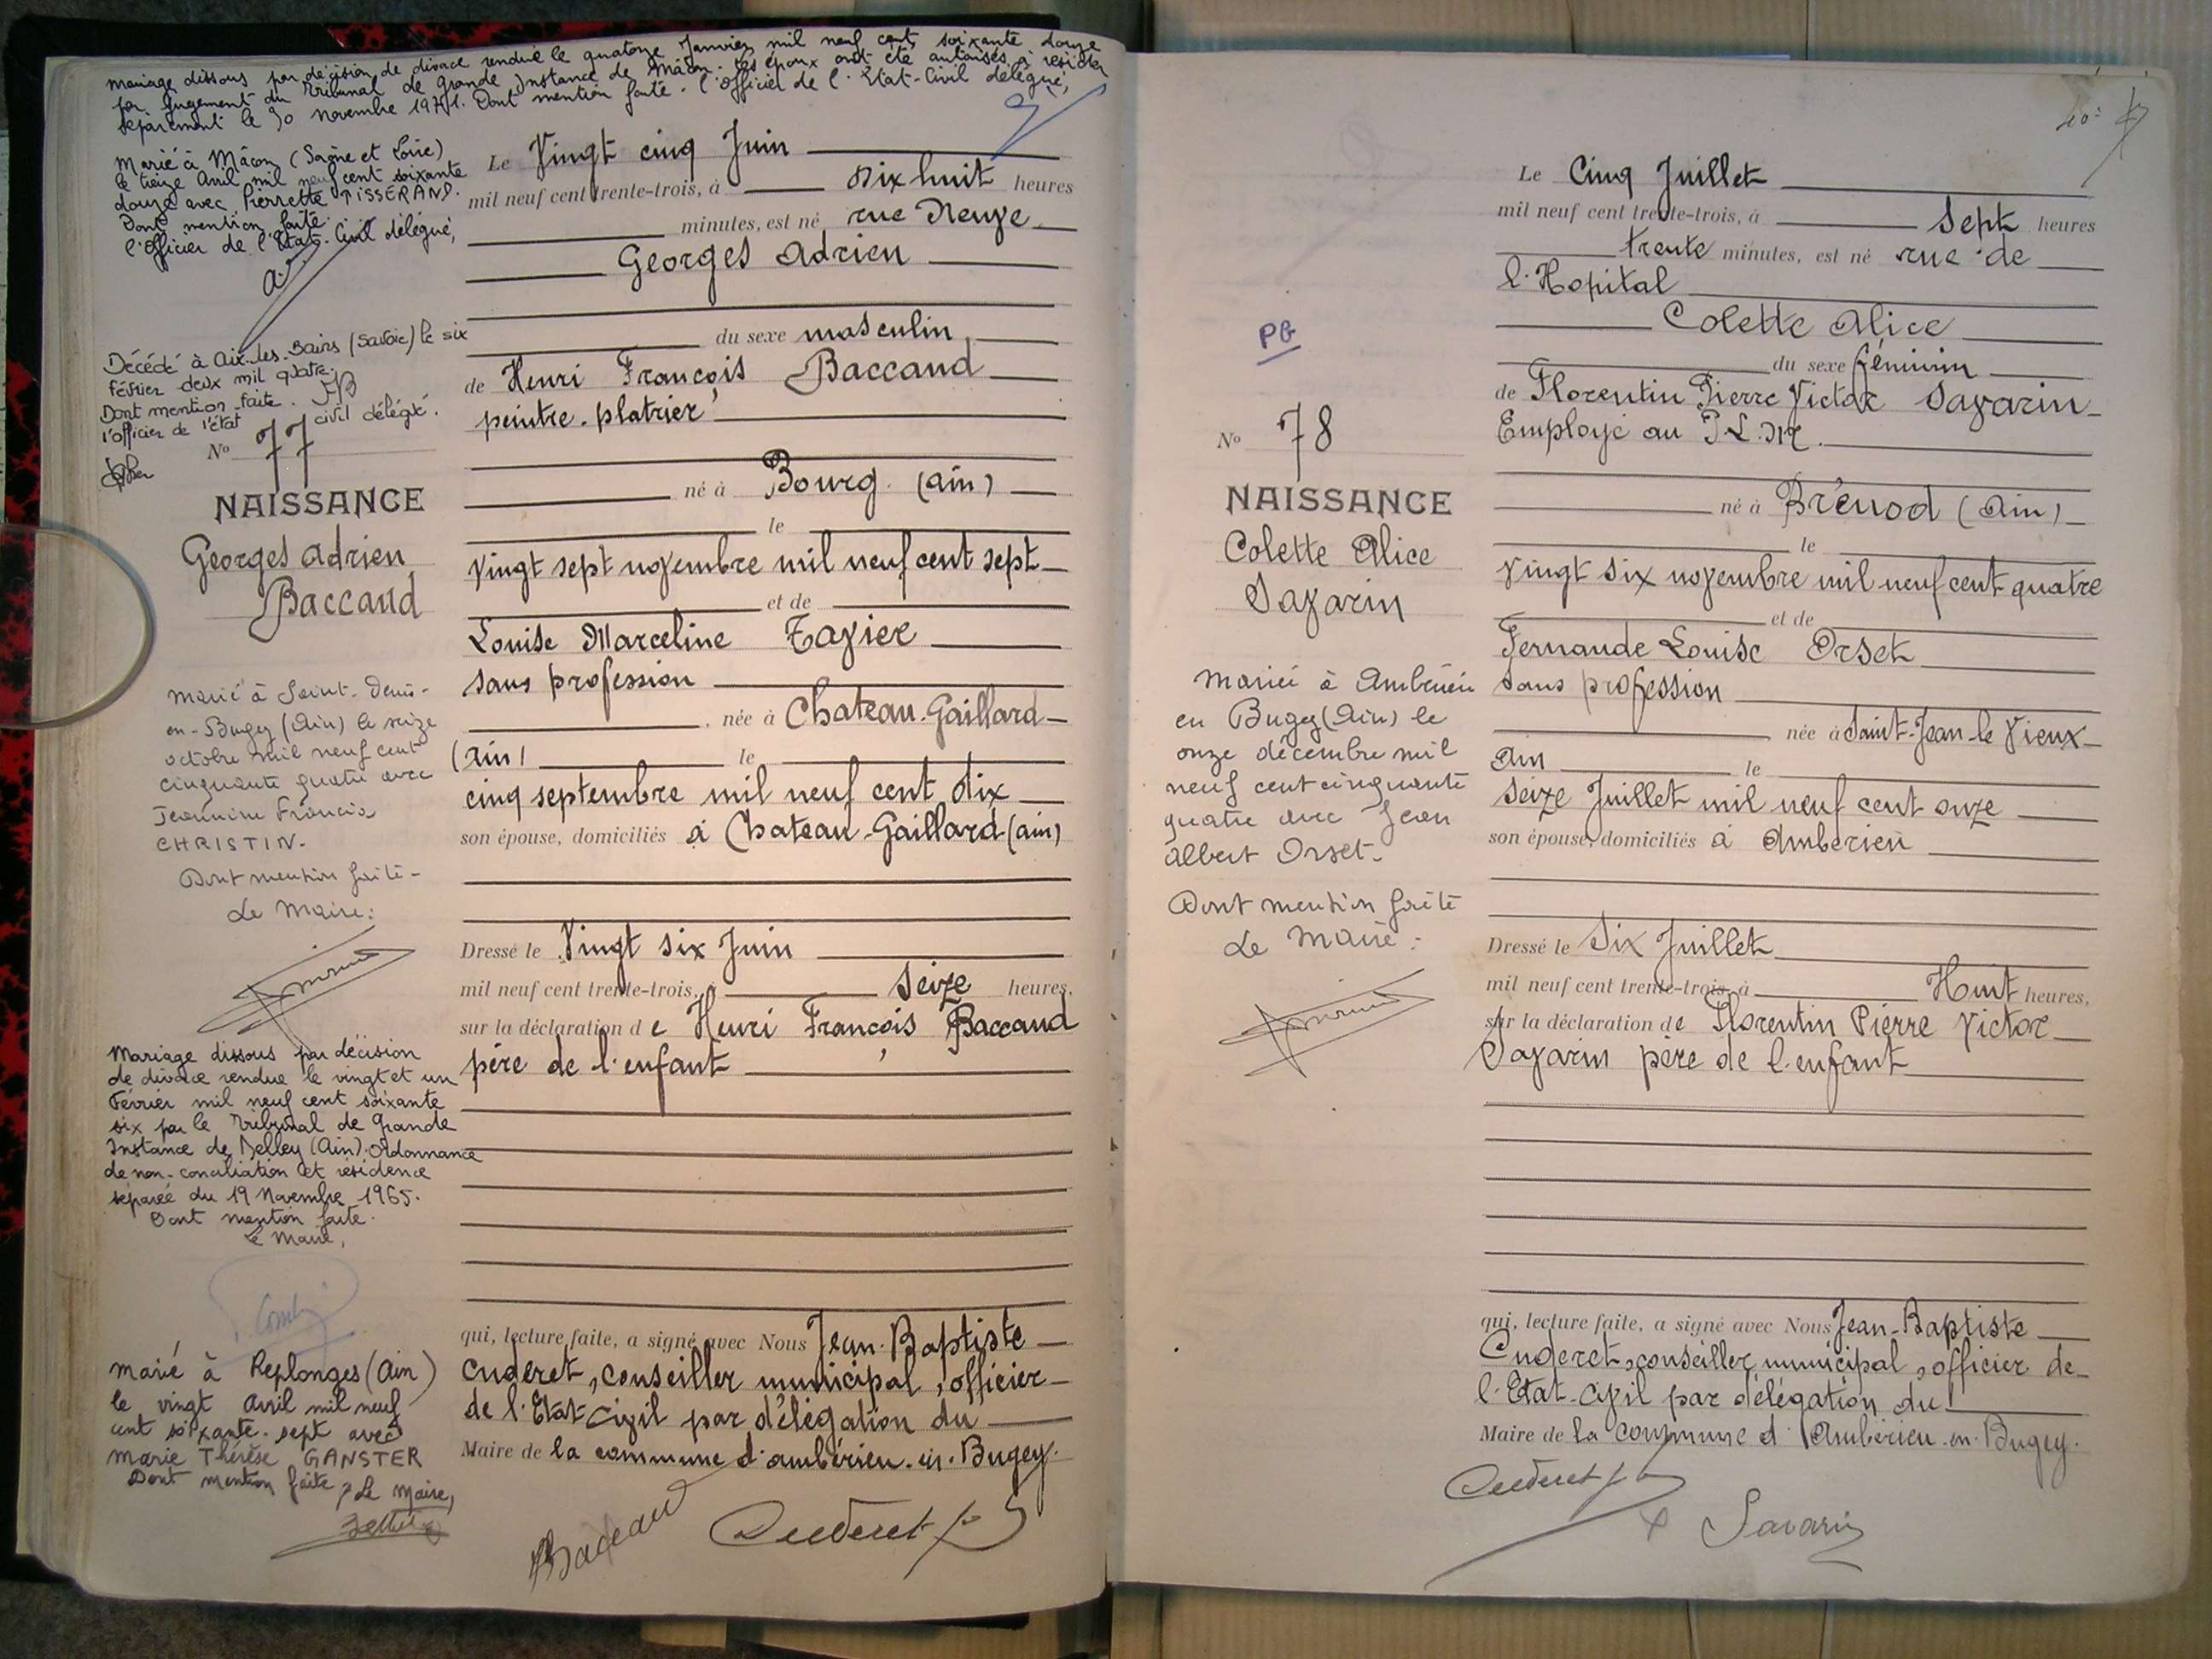 mariage dissous par décision de divorce rendue le quatorze Janvier mil neuf cent soixante douze
par jugement du Tribunal de Grande Instance de Mâcon. Les époux ont été autorisés à résider
séparément le 30 novembre 1971. Dont mention faite. l'Officier de l'Etat-Civil délégué,
Marié à Mâcon (Saône et Loire)
le treize Avril mil neuf cent soixante
douze avec Pierrette TISSERAND.
Dont mention faite.
l'Officier de l'Etat-Civil délégué,
Décédé à Aix-les-Bains (Savoie) le six
février deux mil quatre.
Dont mention faite.
l'officier de l'état civil délégué.
N° 77
NAISSANCE
Georges Adrien
Baccaud
marié à Saint-Denis-
en-Bugey (Ain) le seize
octobre mil neuf cent
cinquante quatre avec
Jeannine Francia
CHRISTIN.
Dont mention faite-
Le Maire:
Mariage dissous par décision
de divorce rendue le vingt et un
Février mil neuf cent soixante
six par le Tribunal de Grande
Instance de Belley (Ain). Ordonnance
de non-conciliation et résidence
séparée du 19 Novembre 1965.
Dont mention faite.
Le Maire,
marié à Replonges (Ain)
le vingt Avril mil neuf
cent soixante-sept avec
Marie Thérèse GANSTER
Dont mention faite
Le Maire,
Le Vingt cinq Juin
mil neuf cent trente-trois, à dix huit heures
minutes, est né rue Neuve
Georges Adrien
du sexe masculin
de Henri François Baccaud
peintre-platrier
né à Bourg (Ain)
le
vingt sept novembre mil neuf cent sept
et de
Louise Marceline Tavier
sans profession
née à Chateau-Gaillard
(Ain) le
cinq septembre mil neuf cent dix
son épouse, domiciliés à Chateau-Gaillard (ain)
Dressé le Vingt six Juin
mil neuf cent trente-trois, à seize heures,
sur la déclaration de Henri François Baccaud
père de l'enfant
qui, lecture faite, a signé avec Nous Jean-Baptiste
Cuderet, conseiller municipal, officier
de l'Etat-Civil par délégation du
Maire de la commune d'ambérieu-en-Bugey.
Cuderet
PG
N° 78
NAISSANCE
Colette Alice
Savarin
Mariée à Ambérieu
en Bugey (Ain) le
onze décembre mil
neuf cent cinquante
quatre avec Jean
Albert Orset.
Dont mention faite
Le Maire:
Le Cinq Juillet
mil neuf cent trente-trois, à sept heures
trente minutes, est né rue de
l'Hopital
Colette Alice
du sexe féminin
de Florentin Pierre Victor Savarin
Employé au P.L.M.
né à Brénod (Ain)
le
vingt six novembre mil neuf cent quatre
et de
Fernande Louise Orset
sans profession
née à Saint-Jean-le Vieux
Ain le
seize Juillet mil neuf cent onze
son épouse, domiciliés à Ambérieu
Dressé le Six Juillet
mil neuf cent trente-trois, à Huit heures,
sur la déclaration de Florentin Pierre Victor
Savarin père de l'enfant
qui, lecture faite, a signé avec Nous Jean-Baptiste
Cuderet, conseiller municipal, officier de
l'Etat-Civil par délégation du
Maire de la commune d'Ambérieu-en-Bugey.
Cuderet
Savarin